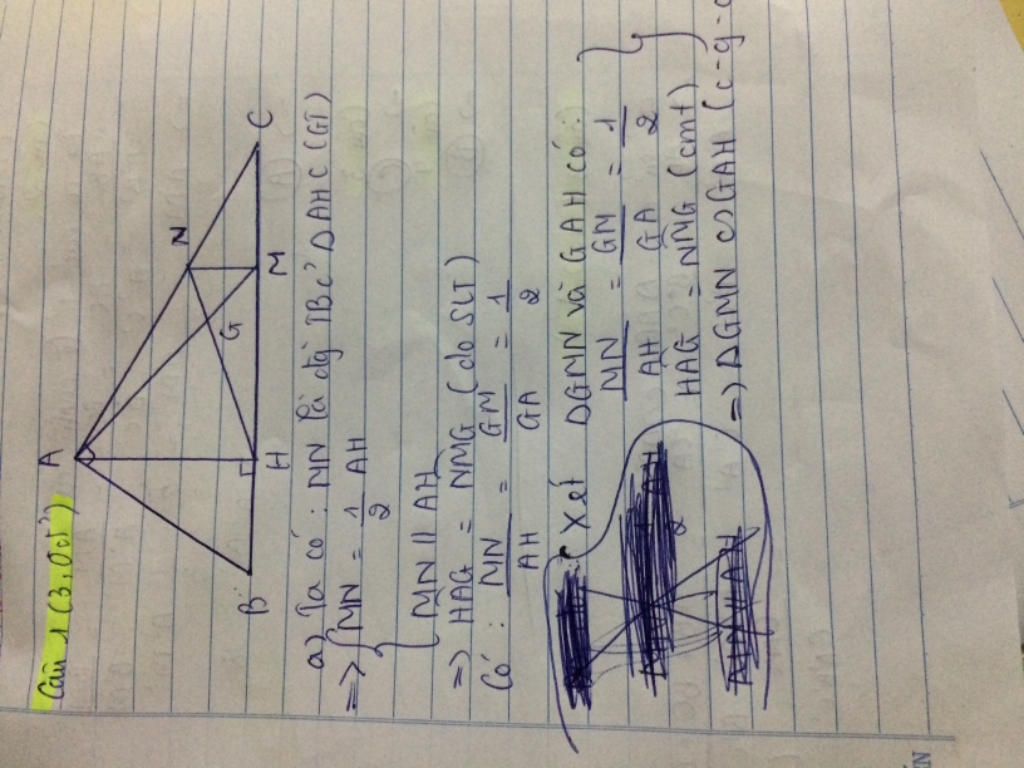 Câu 1 (3,0đ)
A
N
G
B
H
M
C
a) Ta có: MN là đg TB c² ΔAHC (GT)
=> { MN = 1/2 AH
MN // AH
=> HAG = NMG (do SLT)
Có: MN/AH = GM/GA = 1/2
Xét ΔGMN và GAH có:
MN/AH = GM/GA = 1/2
HAG = NMG (cmt)
=> ΔGMN ∽ GAH (c-g-c